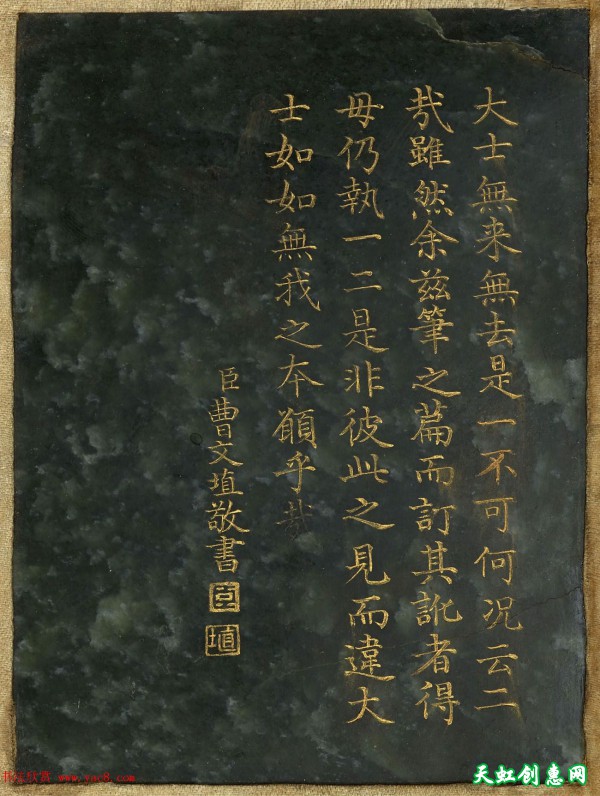 大士無来無去是一不可何况云二
㢤雖然余兹筆之萹而訂其訛者得
毋仍執一二是非彼此之見而違大
士如如無我之本願乎哉
臣曹文埴敬書
埴
书法欣赏 www.yac8.com
天虹创惠网